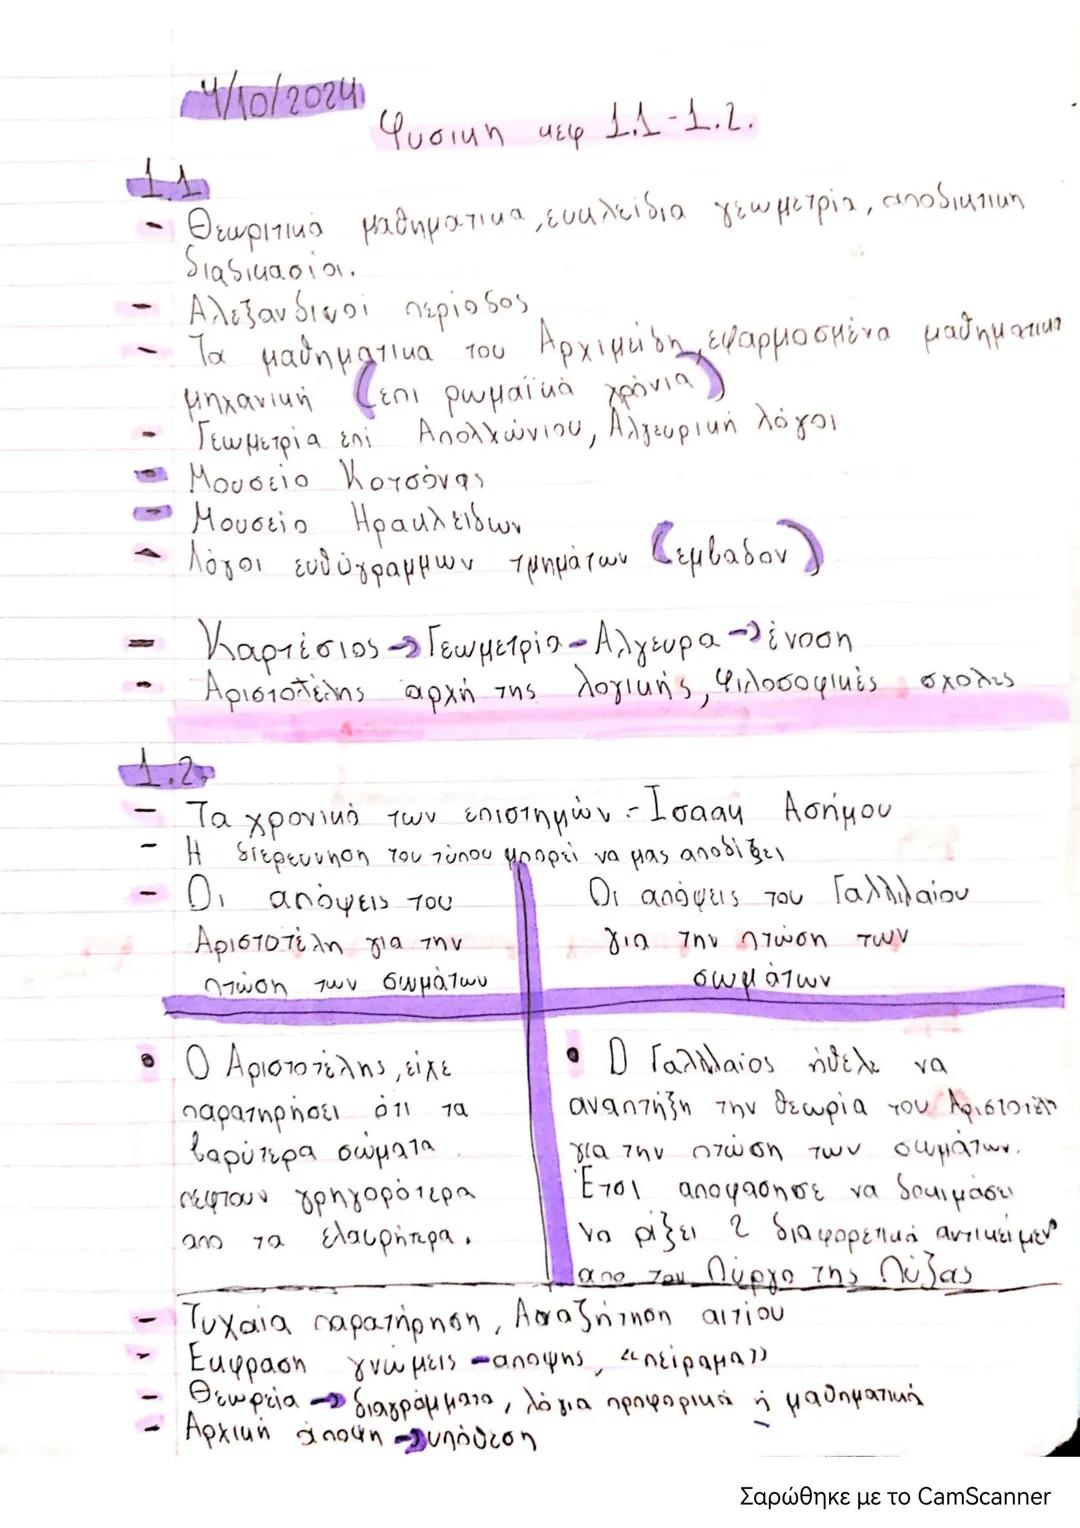 4/10/2024
Φυσικη κεφ 1.1-1.2.
1.1
- Θεωριτικά μαθηματικα, ευκλείδια γεωμετρία, αποδικτικη
διαδικασίοι.
- Αλεξανδινοί περίοδος
- Τα μαθηματικα του Αρχιμίδη, εφαρμοσμένα μαθηματικα
μηχανική (επι ρωμαϊκά χρόνια)
- Γεωμετρία επί Απολλώνιου, Αλγευρική λόγοι
- Μουσείο Κοτσάνας
- Μουσείο Ηρακλειδων
- Λόγοι ευθύγραμμων τμημάτων (εμβαδον)
- Καρτέσιος → Γεωμετρία - Αλγευρα → ένοση
- Αριστοτέλης αρχή της λογικής, Φιλοσοφικές σχολες
1.2.
- Τα χρονικά των επιστημών - Ισαακ Ασήμου
- Η διερευνηση του τύπου μπορεί να μας αποδίξει
- Οι απόψεις του
Αριστοτέλη για την
πτώση των σωμάτων
Οι απόψεις του Γαλλιλαίου
για την πτώση των
σωμάτων
• Ο Αριστοτέλης, είχε
παρατηρήσει ότι τα
βαρύτερα σώματα
πεφτουν γρηγορότερα
απο τα ελαφρητερα.
• Ο Γαλιλαίος ήθελε να
αναπτήξη την θεωρία του Αριστοτέλη
για την πτώση των σωμάτων.
Έτσι αποφασησε να δοκιμάσει
να ρίξει 2 διαφορετικά αντικείμεν
απο τον Πύργο της Πύζας
- Τυχαία παρατήρηση, Αναζήτηση αιτίου
- Εκφραση γνώμεις - αποψης, «πείραμα»
- Θεωρεία → διαγράμματα, λόγια προφορικά ή μαθηματική
- Αρχική άποψη → υπόθεση
Σαρώθηκε με το CamScanner